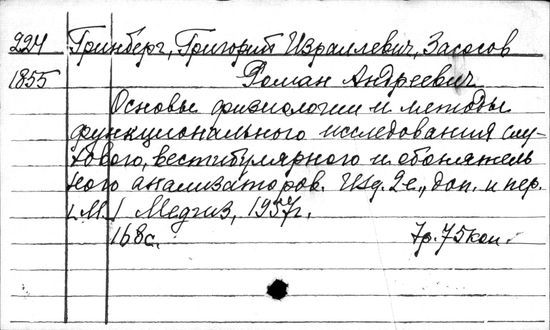 224 Гринберг, Григорий Израилевич, Засосов
1855 Роман Андреевич
Основы физиологии и методы
функционального исследования слу-
хового, вестибулярного и обонятель
ного анализаторов. Изд. 2е., доп. и пер.
[М.] Медгиз, 1957г.
168с. 7р.75коп.